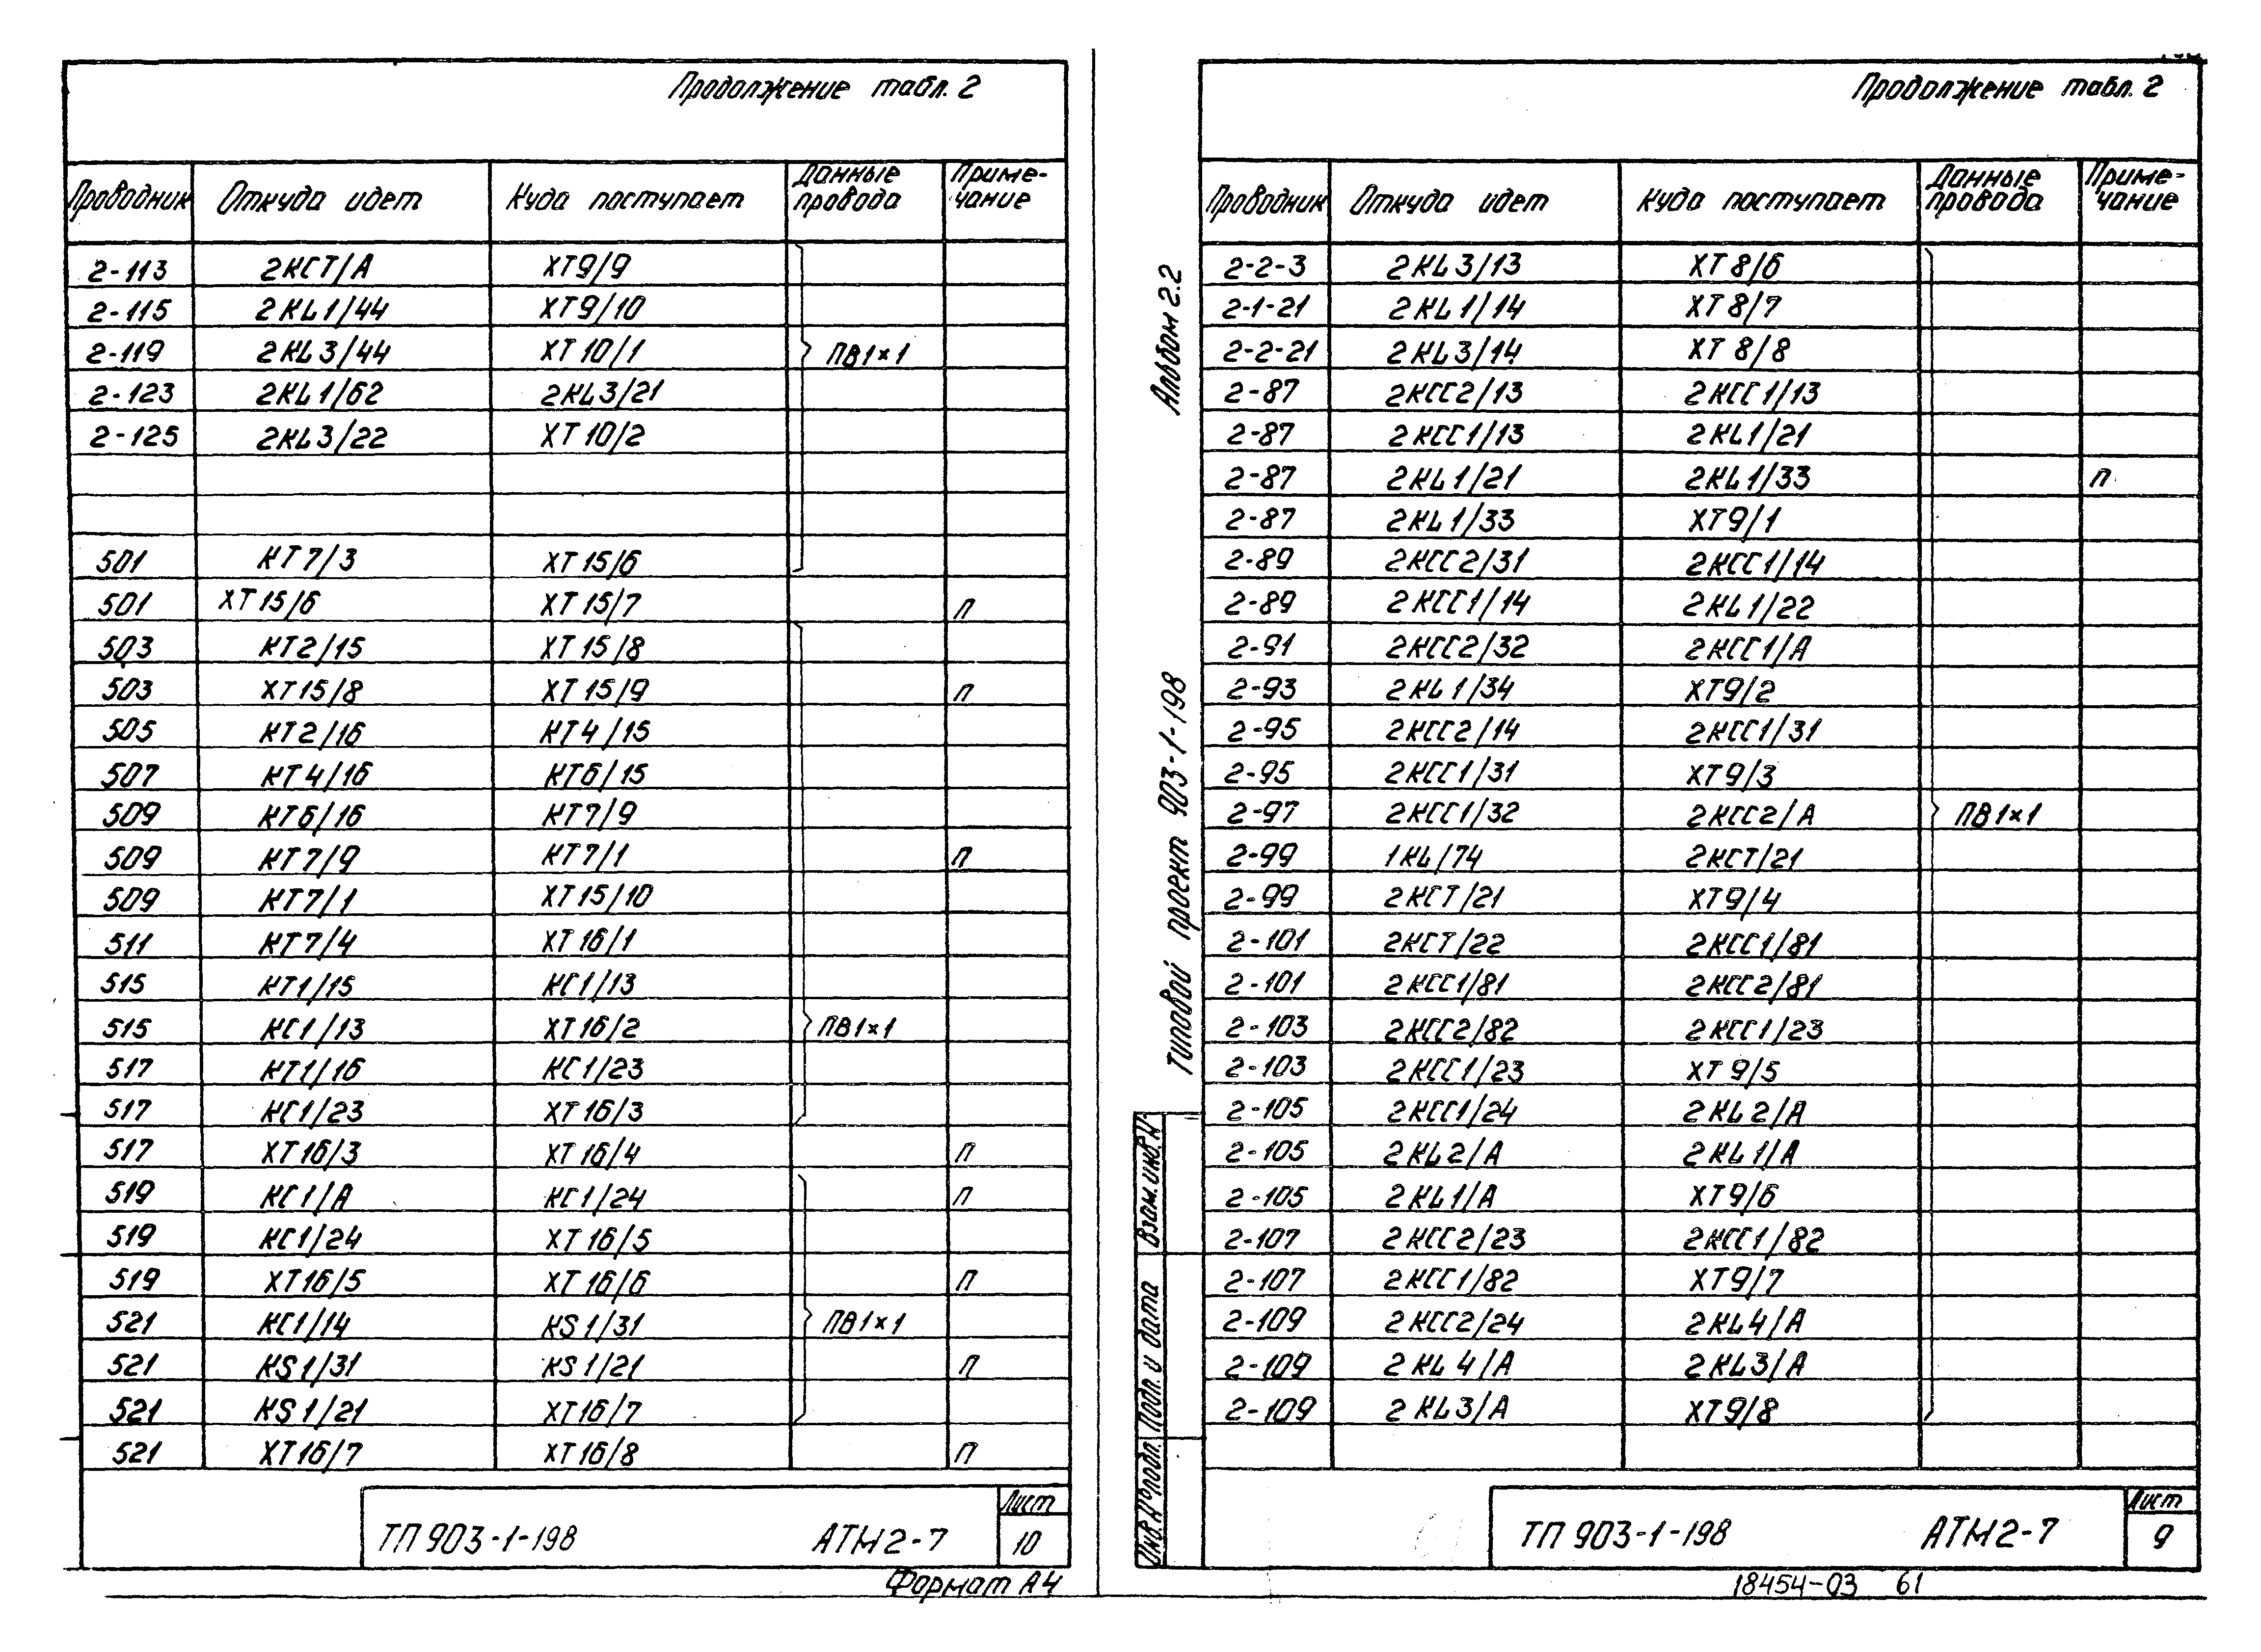 Продолжение табл. 2
Проводник Откуда идет Куда поступает Данные провода Приме-чание
2-113 2КСТ/А ХТ9/9
2-115 2KL1/44 ХТ9/10
2-119 2KL3/44 ХТ10/1 ПВ1×1
2-123 2KL1/62 2KL3/21
2-125 2KL3/22 ХТ10/2
501 КТ7/3 ХТ15/6
501 ХТ15/6 ХТ15/7 П
503 КТ2/15 ХТ15/8
503 ХТ15/8 ХТ15/9 П
505 КТ2/16 КТ4/15
507 КТ4/16 КТ6/15
509 КТ6/16 КТ7/9
509 КТ7/9 КТ7/1 П
509 КТ7/1 ХТ15/10
511 КТ7/4 ХТ16/1
515 КТ1/15 КС1/13
515 КС1/13 ХТ16/2 ПВ1×1
517 КТ1/16 КС1/23
517 КС1/23 ХТ16/3
517 ХТ16/3 ХТ16/4 П
519 КС1/А КС1/24 П
519 КС1/24 ХТ16/5
519 ХТ16/5 ХТ16/6 П
521 КС1/14 KS1/31 ПВ1×1
521 KS1/31 KS1/21 П
521 KS1/21 ХТ16/7
521 ХТ16/7 ХТ16/8 П
ТП 903-1-198 АТМ2-7 Лист 10
Формат А4
Продолжение табл. 2
Проводник Откуда идет Куда поступает Данные провода Приме-чание
2-2-3 2KL3/13 ХТ8/6
2-1-21 2KL1/14 ХТ8/7
2-2-21 2KL3/14 ХТ8/8
2-87 2КСС2/13 2КСС1/13
2-87 2КСС1/13 2KL1/21
2-87 2KL1/21 2KL1/33 П
2-87 2KL1/33 ХТ9/1
2-89 2КСС2/31 2КСС1/14
2-89 2КСС1/14 2KL1/22
2-91 2КСС2/32 2КСС1/А
2-93 2KL1/34 ХТ9/2
2-95 2КСС2/14 2КСС1/31
2-95 2КСС1/31 ХТ9/3
2-97 2КСС1/32 2КСС2/А ПВ1×1
2-99 1KL/74 2КСТ/21
2-99 2КСТ/21 ХТ9/4
2-101 2КСТ/22 2КСС1/81
2-101 2КСС1/81 2КСС2/81
2-103 2КСС2/82 2КСС1/23
2-103 2КСС1/23 ХТ9/5
2-105 2КСС1/24 2KL2/А
2-105 2KL2/А 2KL1/А
2-105 2KL1/А ХТ9/6
2-107 2КСС2/23 2КСС1/82
2-107 2КСС1/82 ХТ9/7
2-109 2КСС2/24 2KL4/А
2-109 2KL4/А 2KL3/А
2-109 2KL3/А ХТ9/8
ТП 903-1-198 АТМ2-7 Лист 9
18454-03 61
Альбом 2.2
Типовой проект 903-1-198
Взам. инв. №
Подп. и дата
Инв. № подл.